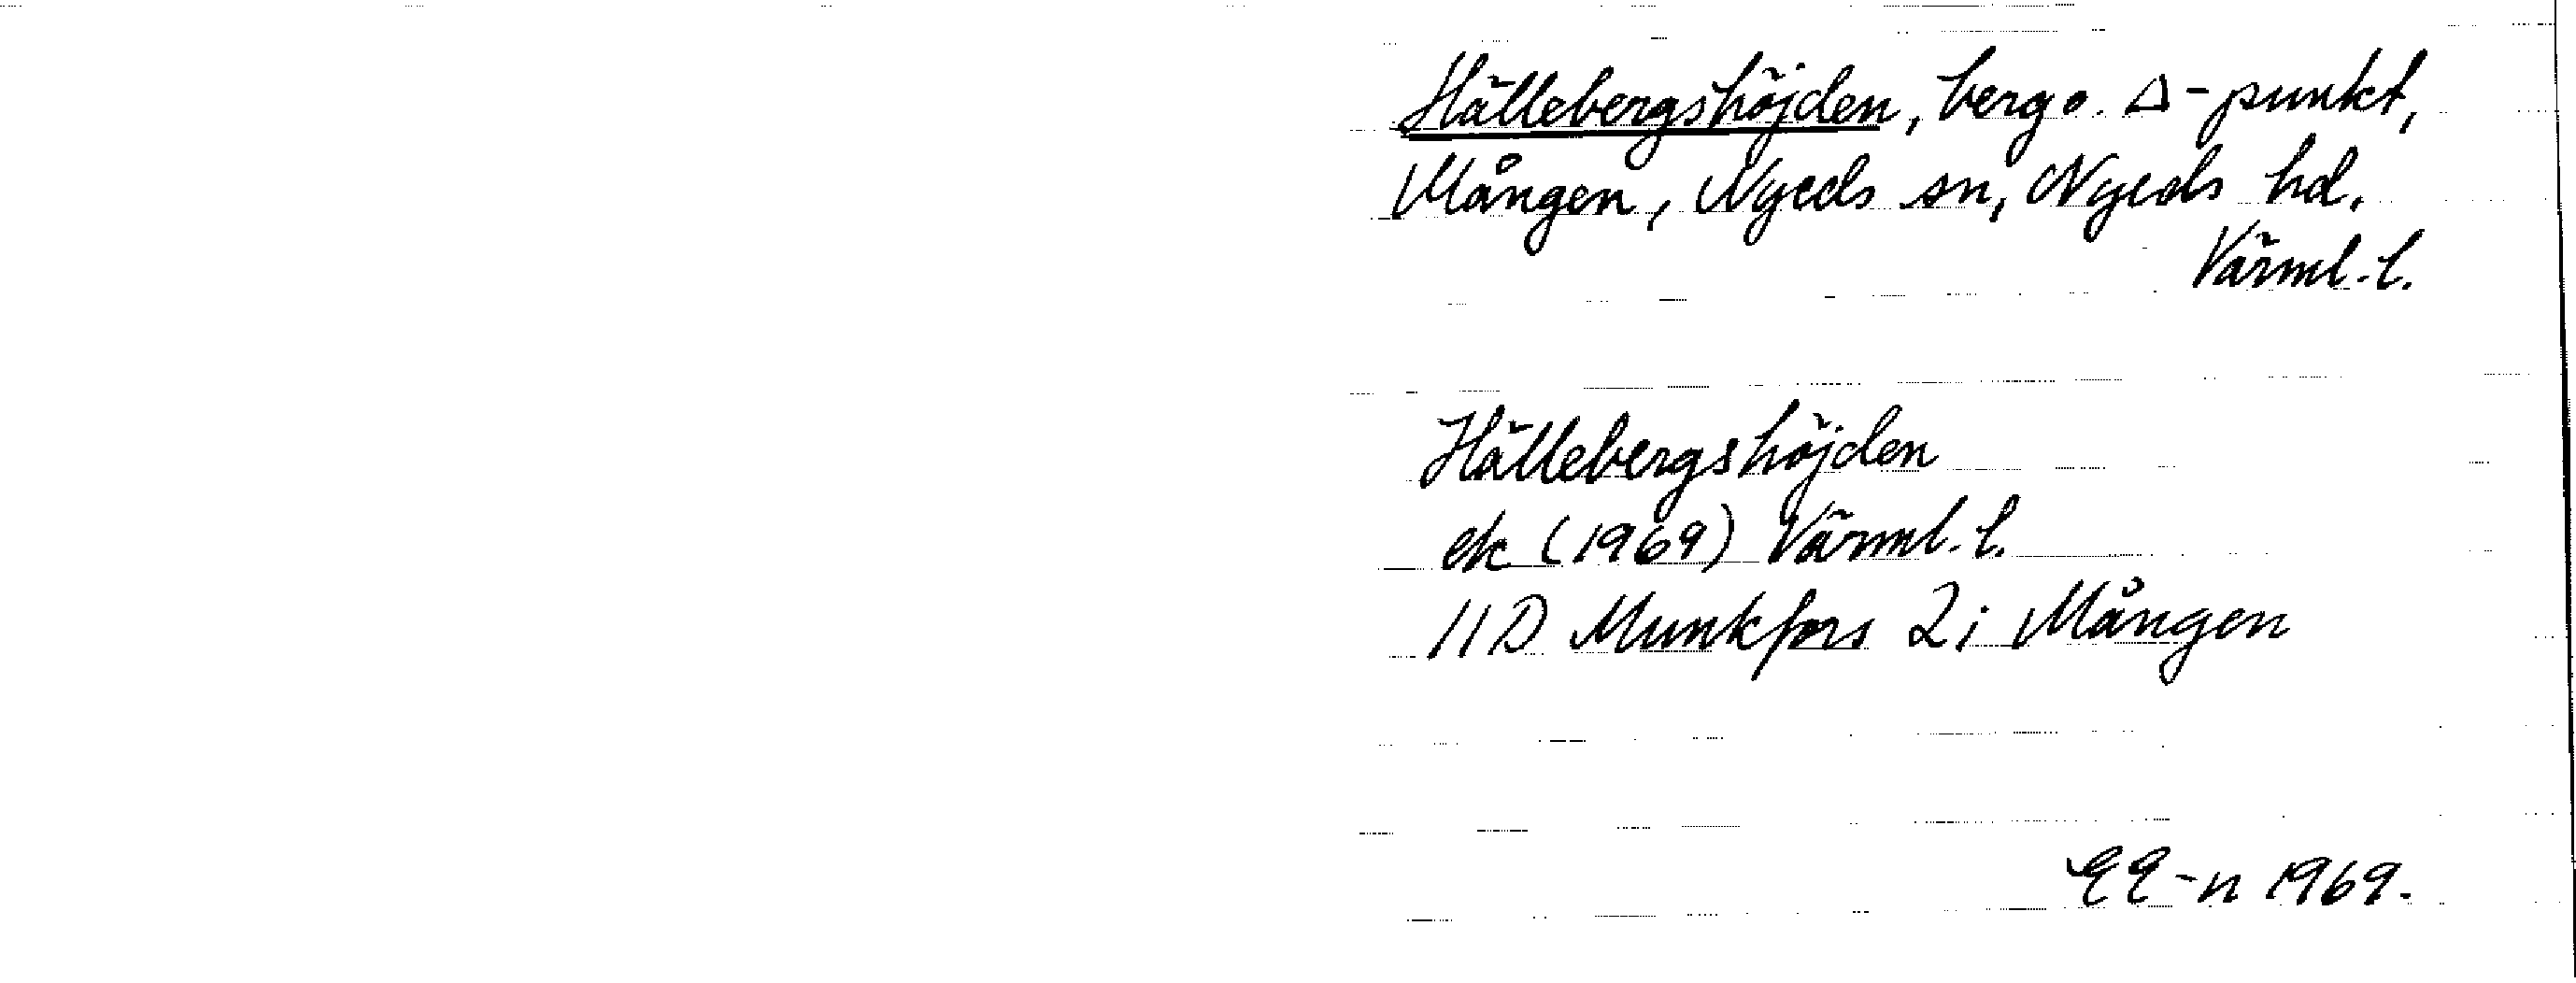 Hällebergshöjden, berg o. Δ-punkt,
Mången, Nyeds sn, Nyeds hd,
Värml. l.
Hällebergshöjden
ek (1969) Värml. l.
11D Munkfors 2i Mången
EE-n 1969.